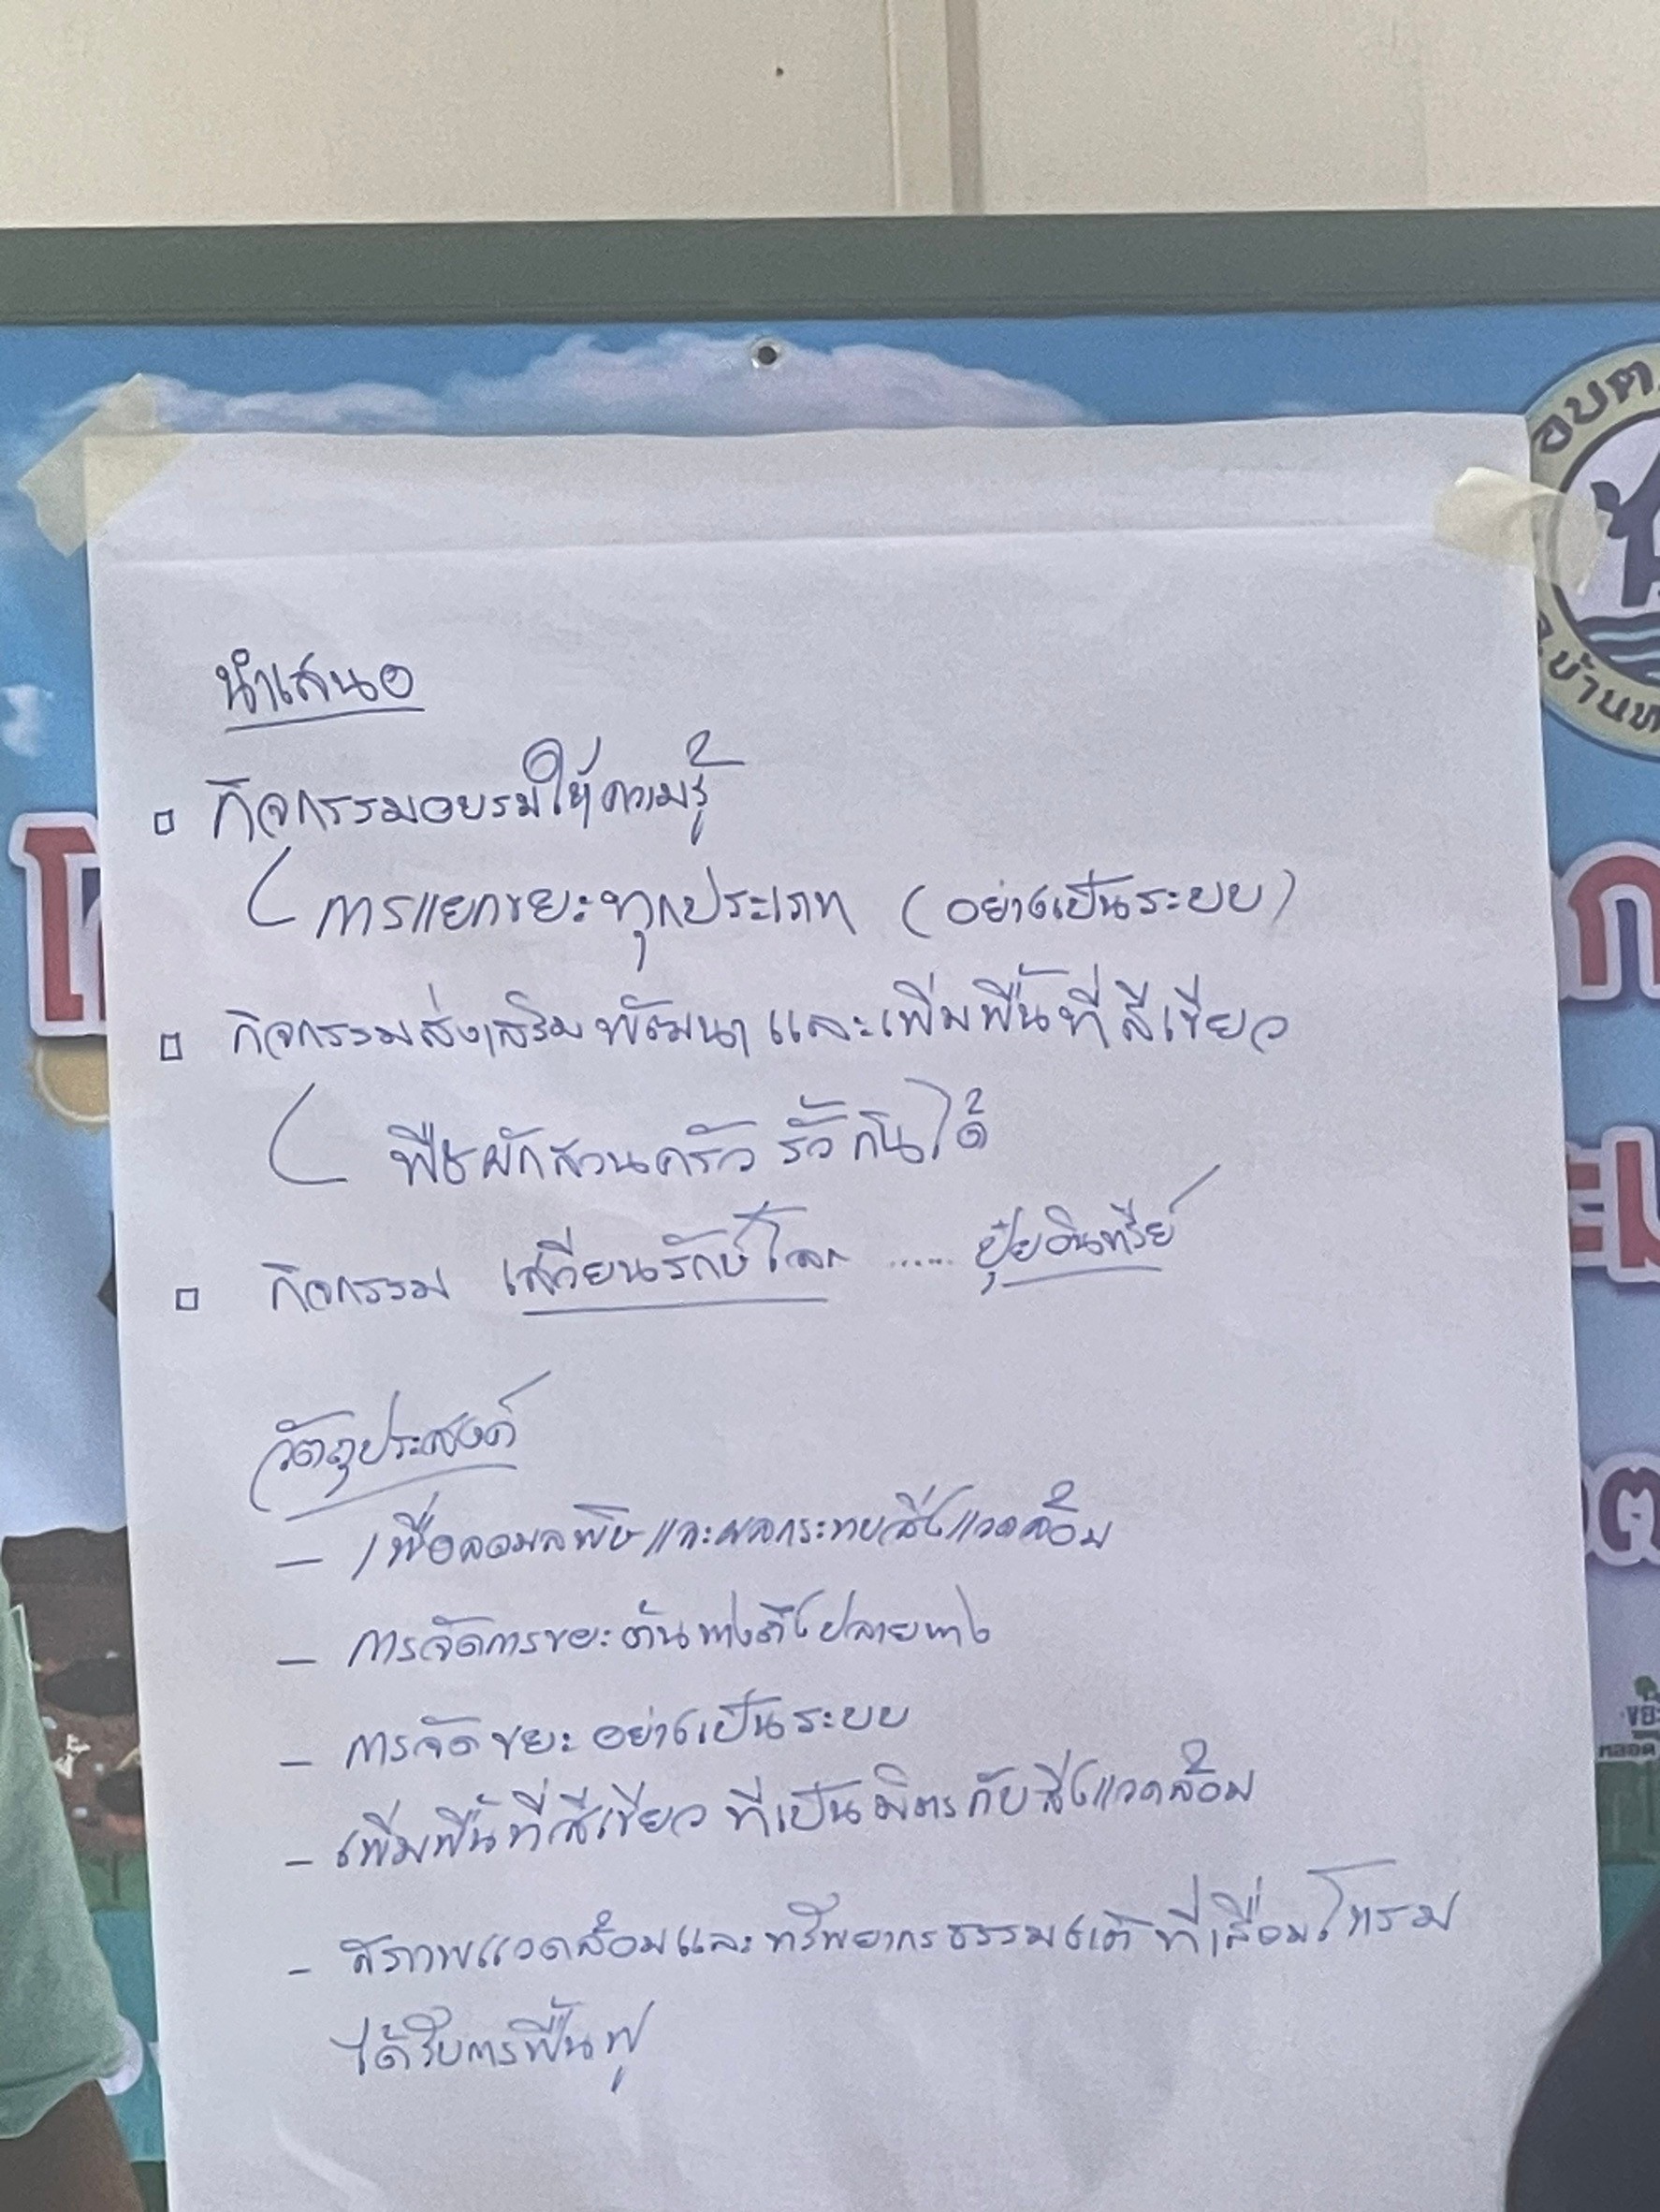 อบต.
นำเสนอ
□ กิจกรรมอบรมให้ความรู้
การแยกขยะทุกประเภท (อย่างเป็นระบบ)
□ กิจกรรมส่งเสริมพัฒนา และเพิ่มพื้นที่สีเขียว
พืชผักสวนครัว รั้วกินได้
□ กิจกรรม เสวียนรักษ์โลก ...... ปุ๋ยอินทรีย์
วัตถุประสงค์
- เพื่อลดมลพิษและผลกระทบสิ่งแวดล้อม
- การจัดการขยะต้นทางถึงปลายทาง
- การจัดขยะอย่างเป็นระบบ
- เพิ่มพื้นที่สีเขียว ที่เป็นมิตรกับสิ่งแวดล้อม
- สภาพแวดล้อมและทรัพยากรธรรมชาติ ที่เสื่อมโทรม
ได้รับการฟื้นฟู